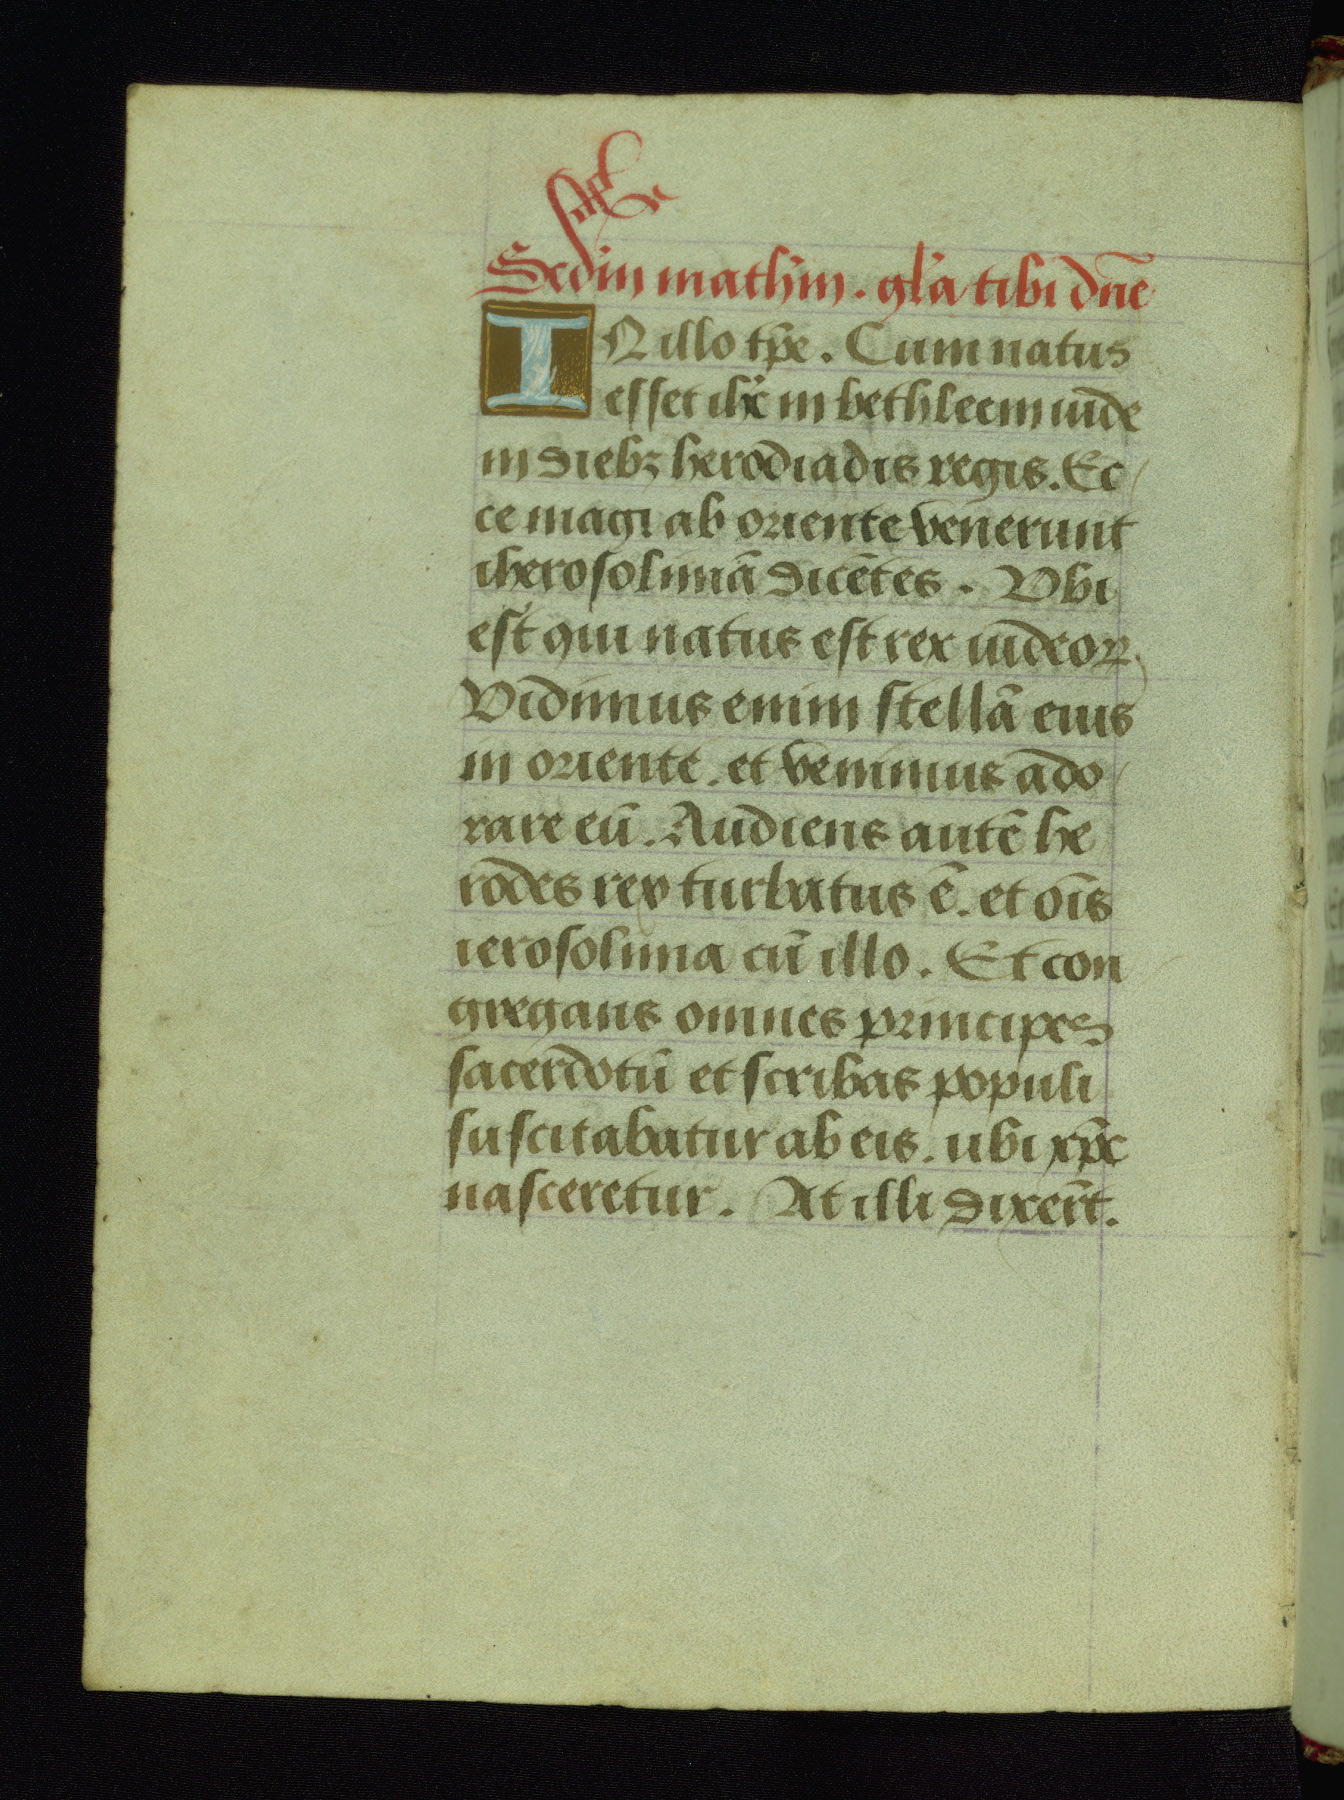 Scdm mathm. gl'a tibi dñe
IN illo tp̄e. Cum natus
esset ihc̄ in bethleem iude
in dieb3 herodiadis regis. Ec
ce magi ab oriente venerunt
iherosolimā dicētes. Vbi
est qui natus est rex iudeoꝝ.
Vidimus enim stellā eius
in oriente. et venimus ado
rare eū. Audiens autē he
rodes rex turbatus ē. et oīs
ierosolima cū illo. Et con
gregans omnes principes
sacerdotū et scribas populi
suscitabatur ab eis. ubi xp̄c
nasceretur. At illi dixerīt.